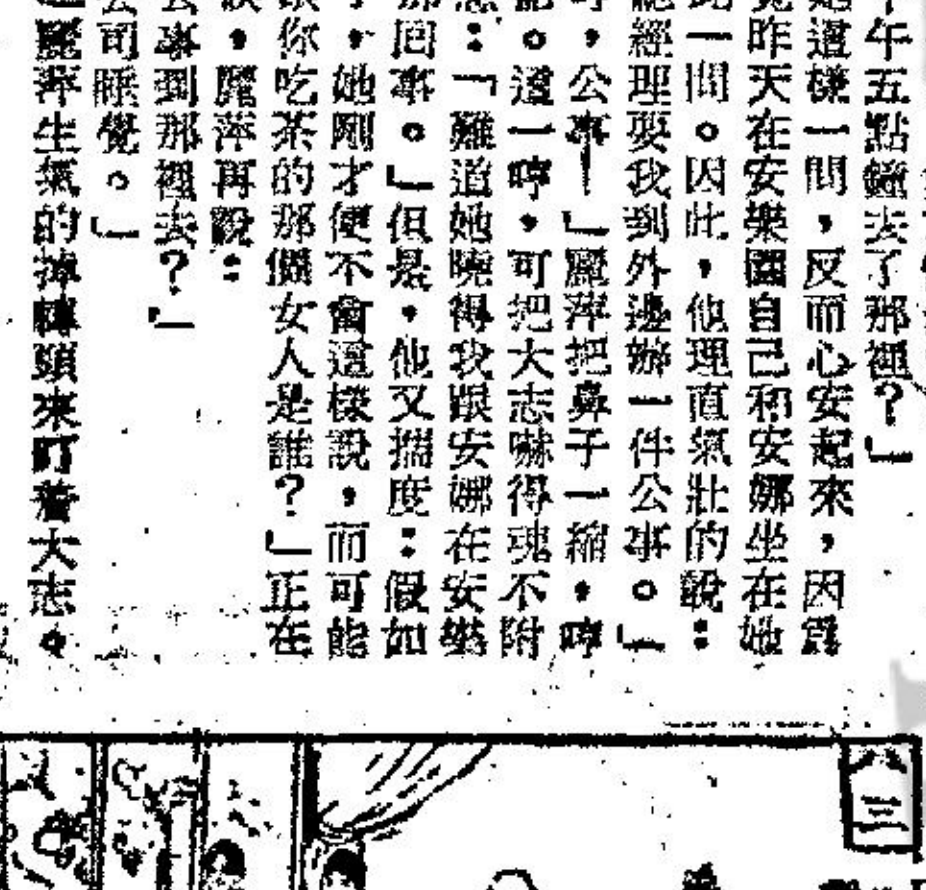 午五點鐘去了那裡？」
這樣一問，反而心安起來，因爲
昨天在安樂園自己和安娜坐在她
一問。因此，他理直氣壯的說：
經理要我到外邊辦一件公事。」
，公事—」麗萍把鼻子一縮，哼
。這一哼，可把大志嚇得魂不附
：「難道她曉得我跟安娜在安樂
那囘事。」但是，他又揣度：假如
，她剛才便不會這樣說，而可能
你吃茶的那個女人是誰？」正在
，麗萍再說：
公事到那裡去？」
公司睡覺。」
麗萍生氣的掉轉頭來盯着大志。
八三